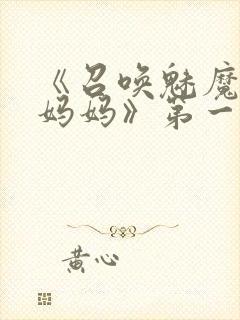 《召唤魅魔
妈妈》第一
黄心